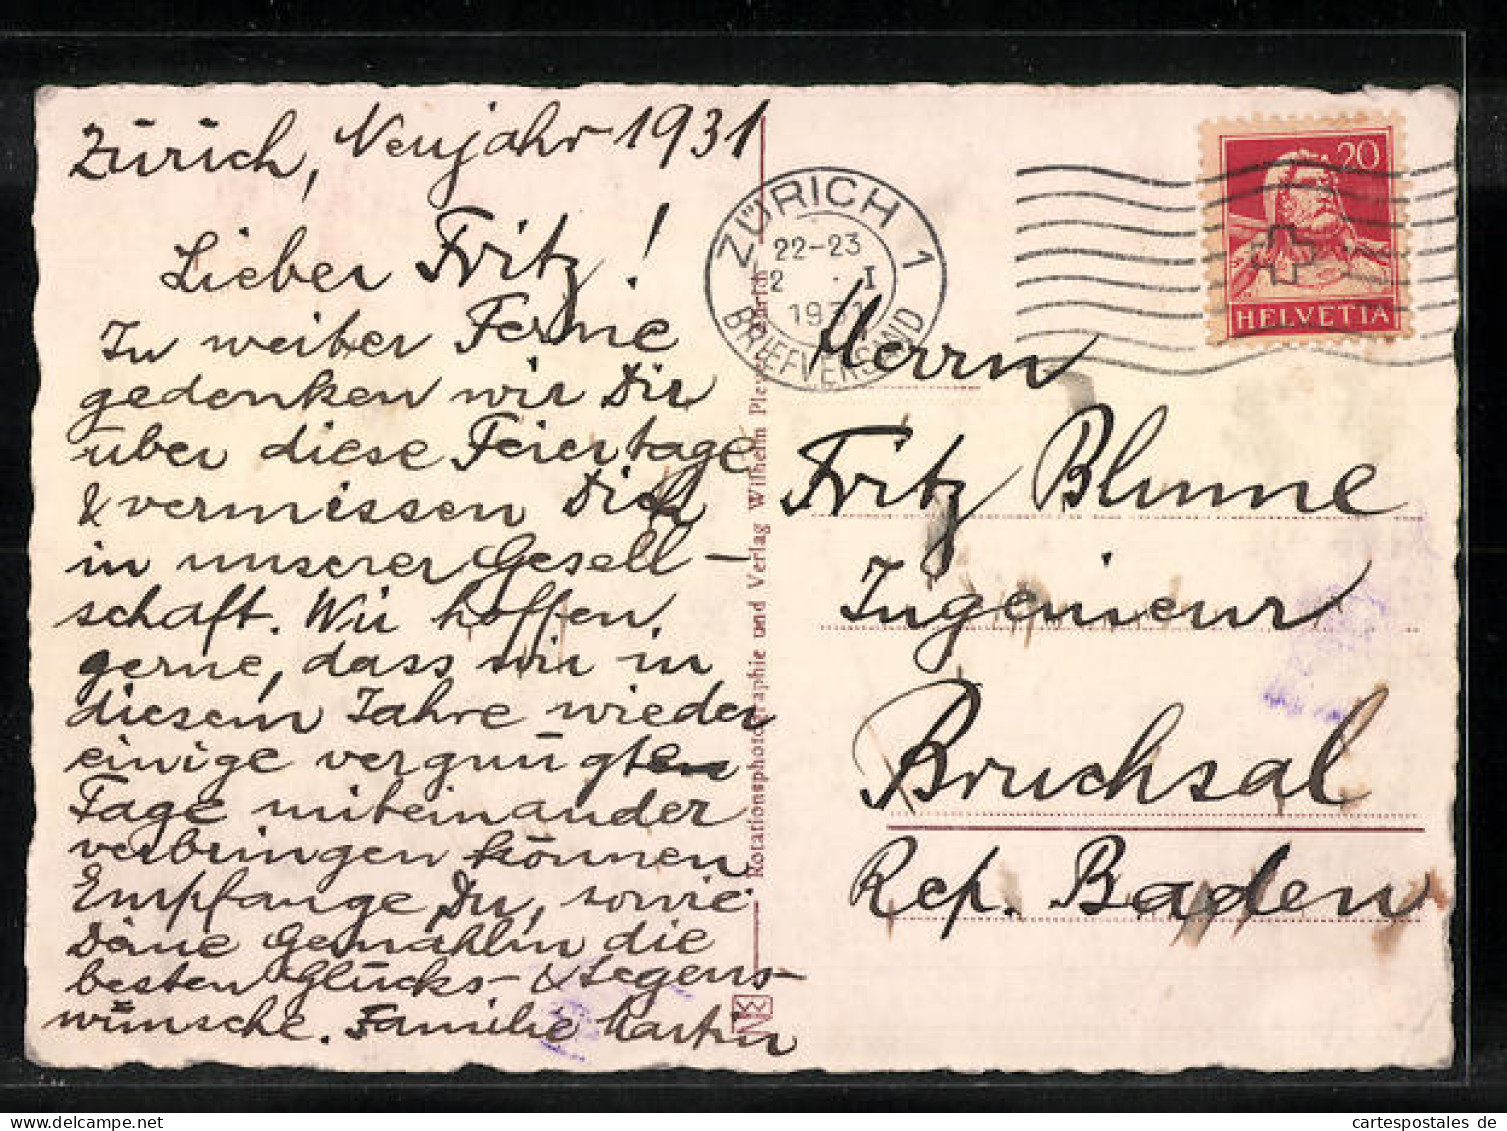 Zürich, Neujahr 1931
Lieber Fritz!
In weiter Ferne
gedenken wir Dir
über diese Feiertage
& vermissen Dich
in unserer Gesell-
schaft. Wir hoffen
gerne, dass wir in
diesem Jahre wieder
einige vergnügte
Tage miteinander
verbringen können
Empfange Du, sowie
Deine Gemahlin die
besten Glücks- & Segens-
wünsche. Familie
Rotationsphotographie und Verlag Wilhelm
NB
ZÜRICH 1
22-23
2 . I
1931
BRIEFVERSAND
20
HELVETIA
Herrn
Fritz Blume
Ingenieur
Bruchsal
Rep. Baden
cartespostales de